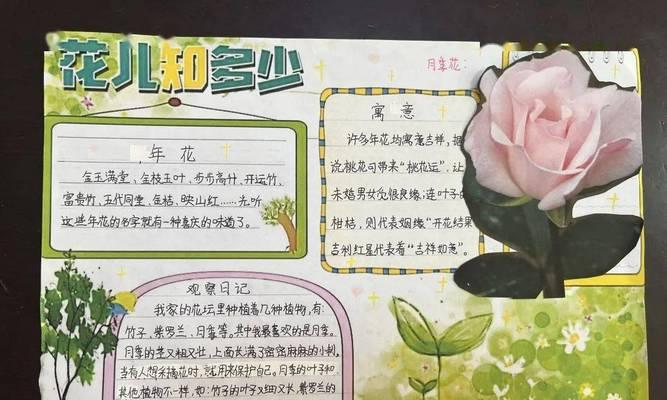 花儿知多少
月季花:
年花
金玉满堂、金枝玉叶、步步高升、开运竹、
富贵竹、五代同堂、金桔、映山红……光听
这些年花的名字就有一种喜庆的味道了。
寓意
许多年花均寓意吉祥,据
说桃花可带来“桃花运”,让
未婚男女觅佷良缘;连叶子的
柑桔,则代表姻缘“开花结果
吉利红星代表着“吉祥如意”。
观察日记
我家的花坛里种植着几种植物,有:
竹子、紫罗兰、月季等。其中我最喜欢的是月季。
月季的茎又粗又壮,上面长满了密密麻麻的小刺,
当有人想采摘花时,就用来保护自己。月季的叶子和
其他植物不一样,如:竹子的叶又细又长,紫罗兰的